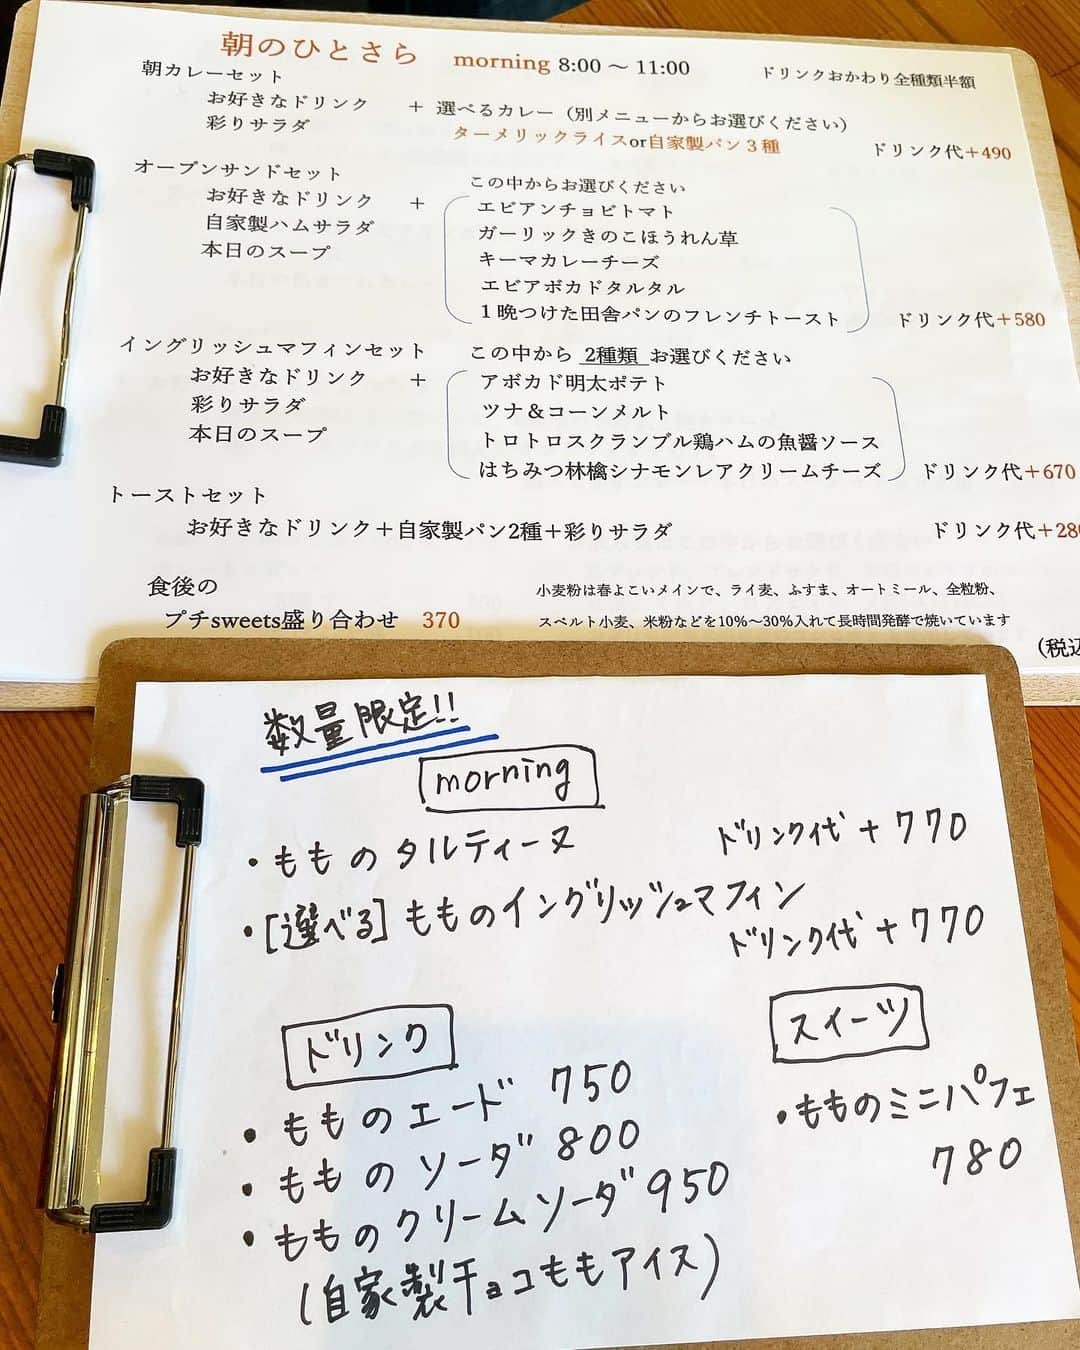 朝のひとさら morning 8:00 〜 11:00 ドリンクおかわり全種類半額
朝カレーセット
お好きなドリンク ＋ 選べるカレー（別メニューからお選びください）
彩りサラダ ターメリックライスor自家製パン３種 ドリンク代＋490
オープンサンドセット この中からお選びください
お好きなドリンク ＋ エビアンチョビトマト
自家製ハムサラダ ガーリックきのこほうれん草
本日のスープ キーマカレーチーズ
エビアボカドタルタル
１晩つけた田舎パンのフレンチトースト ドリンク代＋580
イングリッシュマフィンセット この中から 2種類 お選びください
お好きなドリンク ＋ アボカド明太ポテト
彩りサラダ ツナ＆コーンメルト
本日のスープ トロトロスクランブル鶏ハムの魚醤ソース
はちみつ林檎シナモンレアクリームチーズ ドリンク代＋670
トーストセット
お好きなドリンク＋自家製パン2種＋彩りサラダ ドリンク代＋280
食後の 小麦粉は春よこいメインで、ライ麦、ふすま、オートミール、全粒粉、
プチsweets盛り合わせ 370 スペルト小麦、米粉などを10%〜30%入れて長時間発酵で焼いています
（税込
数量限定!!
morning
・もものタルティーヌ ドリンク代＋770
・[選べる]もものイングリッシュマフィン
ドリンク代＋770
ドリンク
・もものエード 750
・もものソーダ 800
・もものクリームソーダ 950
（自家製チョコももアイス）
スイーツ
・もものミニパフェ
780